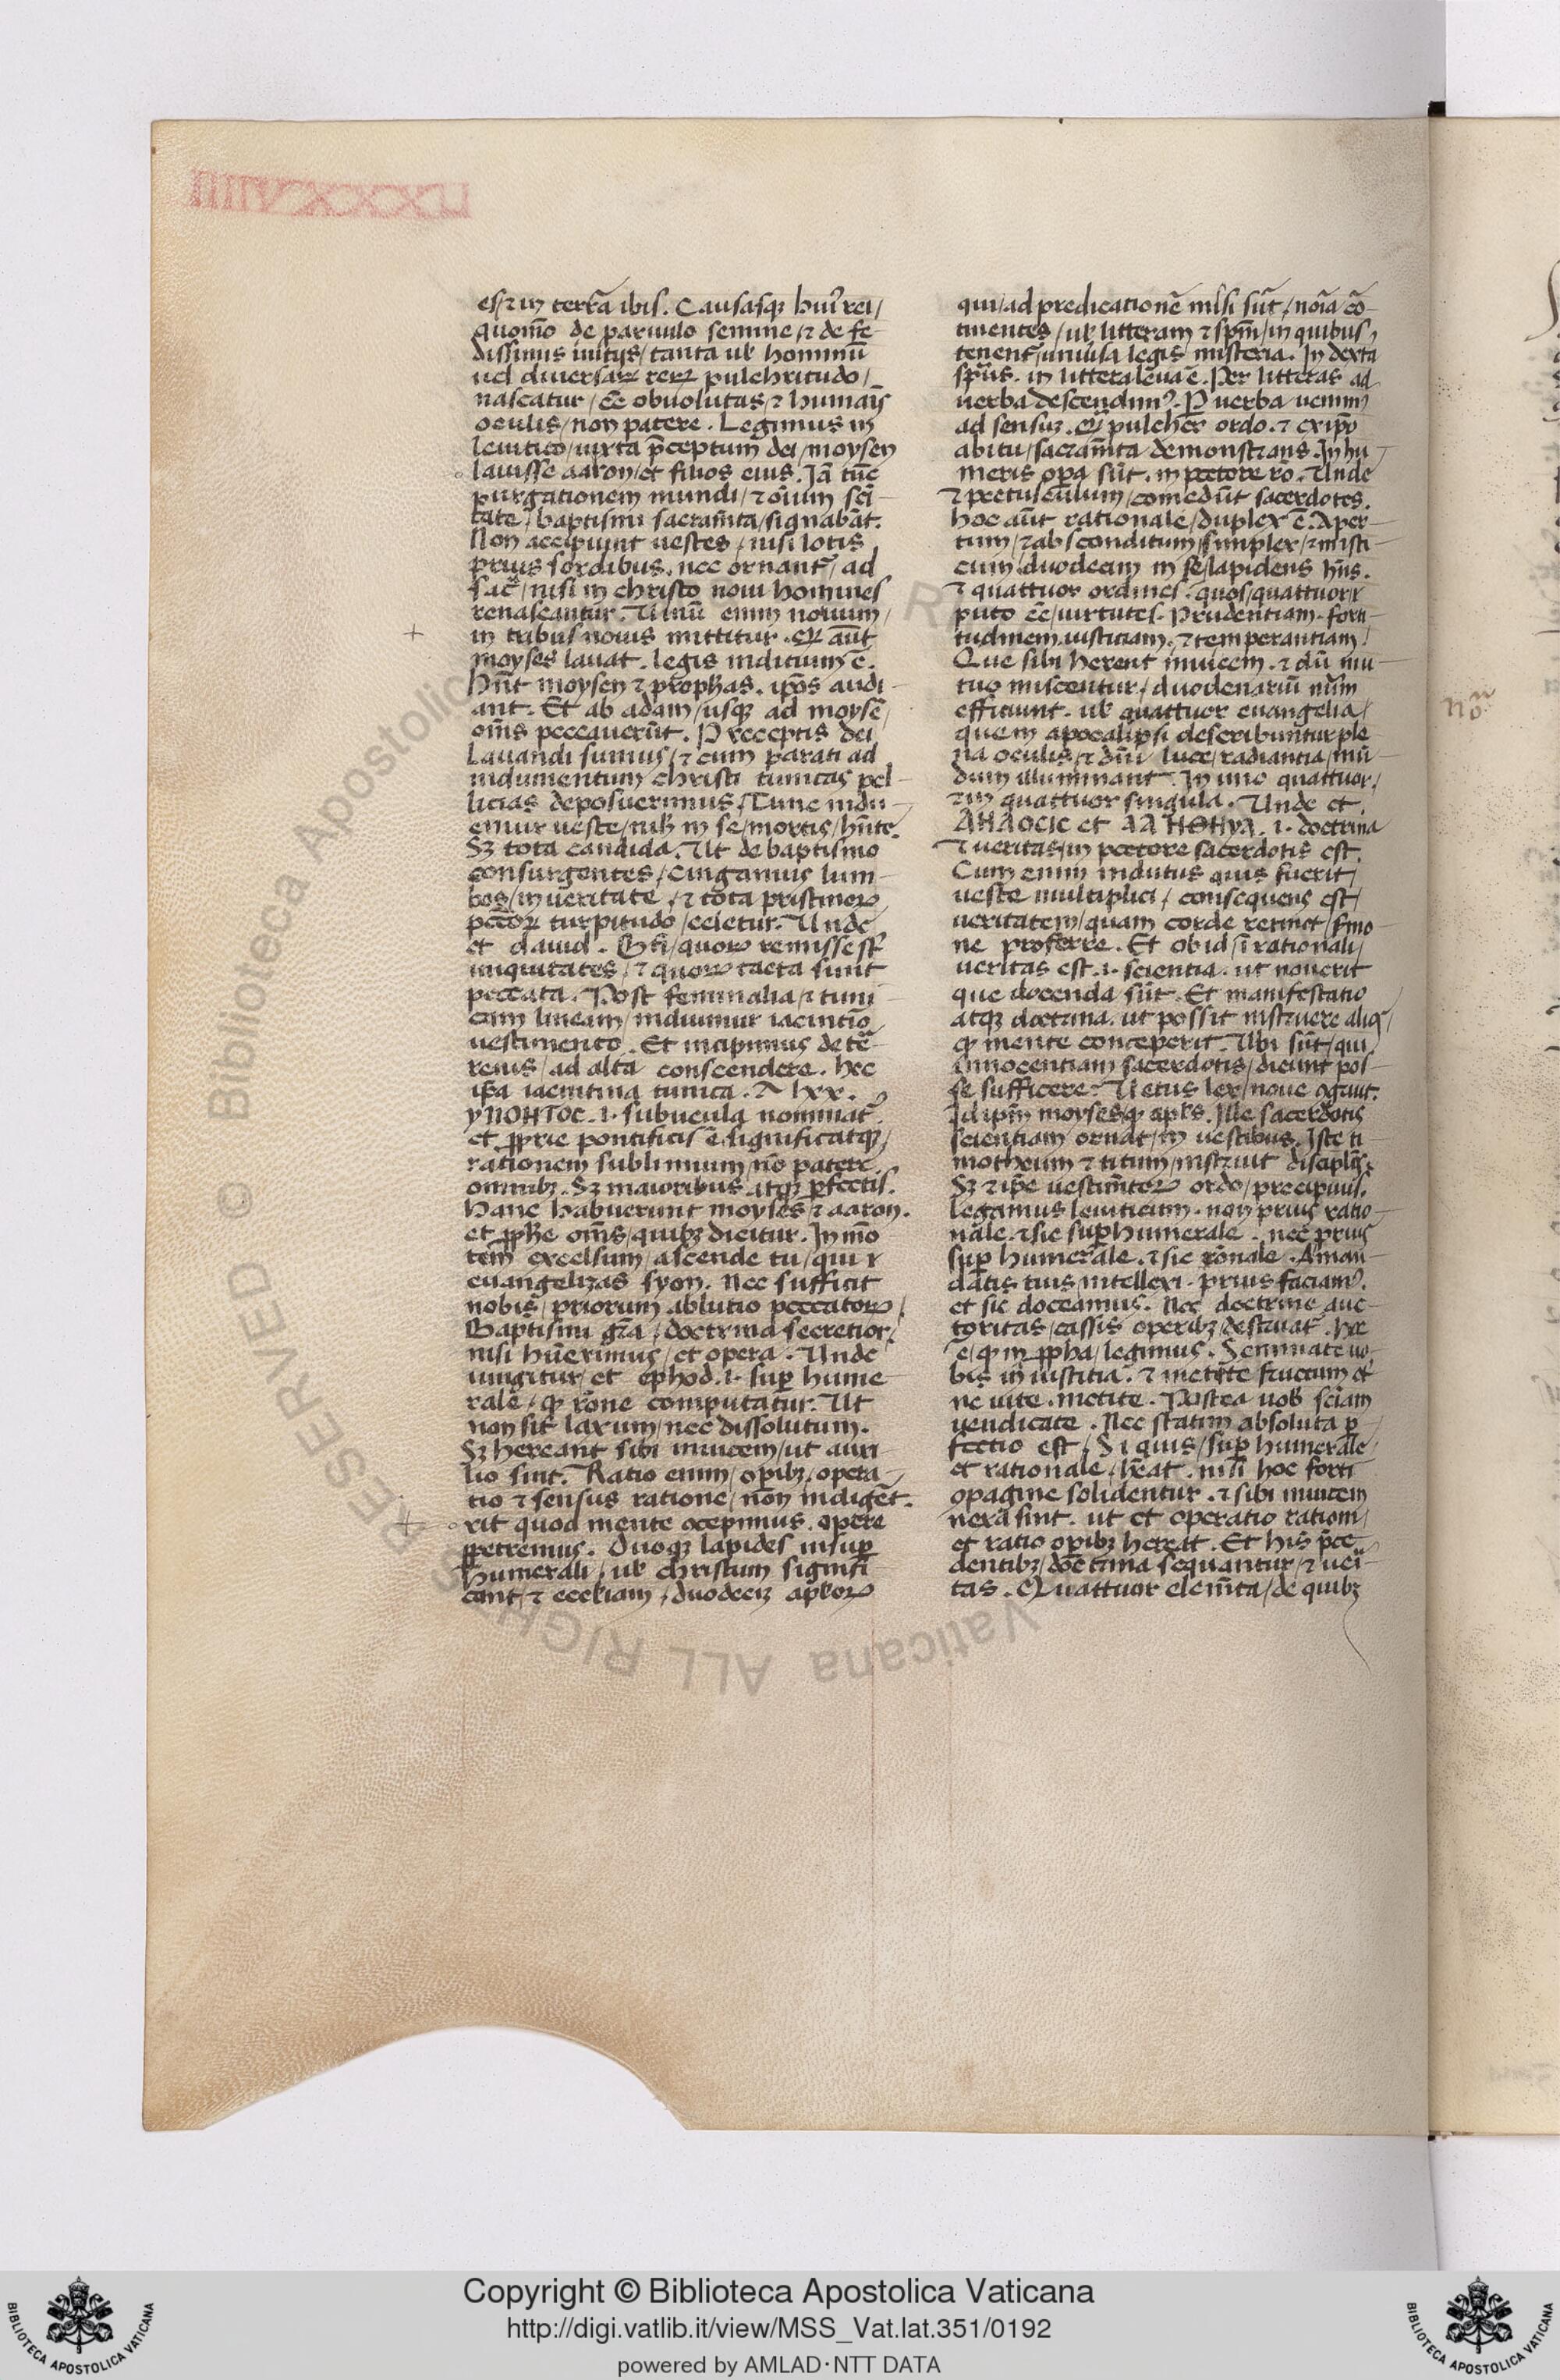 es/⁊ in terrā ibis. Causasqꝫ huiꝰ rei/
quomō de paruulo semine/⁊ de fe-
dissimis initijs/tanta uel hominū
uel diuersaꝝ reꝝ pulchritudo/
nascatur/ēē obuolutas/⁊ humaīs
oculis/non patere. Legimus in
leuitico/iuxta p̄ceptum dei/moysen
lauisse aaron/et filios eius. Iā tūc
purgationem mundi/⁊ oīum sc̄i-
tatē/baptismi sacram̄ta/signabāt.
Non accipiunt uestes/nisi lotis
prius sordibus. nec ornant̄/ad
sac̄/nisi in christo noui homines
renascantur. Uinū enim nouum/
in tribus nouis mittitur. Qꝫ aūt
moyses lauat. legis inditium ē.
Hn̄t moysen ⁊ prophas. ip̄os audi-
ant. Et ab adam/usqꝫ ad moysē/
om̄s peccauerūt. Preceptis dei
Lauandi sumus/⁊ cum parati ad
indumentum christi tunicas pel-
licias deposuerimus/Tunc indu-
emur ueste/nichil in se/mortis/hn̄te.
Sꝫ tota candida. Ut de baptismo
consurgentes/cingamus lum-
bos/in ueritate/⁊ tota pristinoꝝ
pccōꝝ turpitudo/celetur. Unde
et dauid. Bt̄i/quoꝝ remisse sf
iniquitates/⁊ quoꝝ tacta sunt
peccata. Post feminalia/⁊ tuni-
cam lineam/induimur iacinctīo
uestimento. Et incipimus de tē-
renis/ad alta conscendere. hec
ip̄a iacintina tunica. A lxx.
yΠOHTOC. i. subucula nominat̄.
et ꝓprie pontificis ē. significatqꝫ/
rationem sublimium/nō patere
omnibꝫ. Sꝫ maioribus atqꝫ ꝑfectis.
Hanc habuerunt moyses/⁊ aaron.
et ꝓphe om̄s/quibꝫ dicitur. In mō
tem excelsum/ascende tu/qui
euangelizas syon. Nec sufficit
nobis/priorum ablutio peccatoꝝ/
Baptismi gr̄a/doctrina secretior/
nisi hūerimus/et opera. Unde
iungitur/et ephod. i. suꝑ hume-
rale/qꝫ rōne computatur. Ut
non sit laxum/nec dissolutum.
Sꝫ hereant sibi inuicem/ut auxi-
lio sint. Ratio enim/opibꝫ/opera-
tio ⁊ sensus ratione/non indigēt.
rit quod mente ocepimus. opere
ꝑpetremus. Duoqꝫ lapides insuꝑ
humerali/uel christum signifi-
cant/⁊ eccliam/duodecīꝫ aplōꝝ
qui/ad predicationē misi sūt/noīa cō-
tinentes/uel litteram ⁊ spm̄/in quibus/
tenent̄/uniūsa legis misteria. In dexta
sp̄us. in littera lēua ē. Per litteras ad
uerba descendimꝰ. P uerba uenimꝰ
ad sensuꝫ. Qꝫ pulcher ordo. ⁊ ex ip̄o
abitu/sacram̄ta demonstrans. In hu-
meris opa sūt. in pectore ro. Unde
⁊ pectusculum/comedūt sacerdotes.
hoc aūt rationale/duplex ē. Aper-
tum/⁊ absconditum/simplex/⁊ misti-
cum/duodecim in se/lapidens hn̄s.
⁊ quattuor ordines. quos/quattuor
puto ēē/uirtutes. Prudentiam. forti-
tudinem. iusticiam. ⁊ temperantiam/
Que sibi herent inuicem. ⁊ dū mu-
tuo miscentur/duodenariū num̄
efficiunt. uel quattuor euangelia/
que in apocalipsi describuntur ple-
na oculis/⁊ dn̄i luce/radiantia/mū-
dum illuminant. In uno quattuor/
⁊ in quattuor singula. Unde et
ΔHΛOCIC et AΛHΘHyA. i. doctrina
⁊ ueritas/in pectore sacerdotis est.
Cum enim indutus quis fuerit/
ueste multiplici/consequens est/
ueritatem/quam corde retinet/smo-
ne proferre. Et ob id/ī rationali/
ueritas est. i. scientia. ut nouerit
que docenda sūt. Et manifestatio
atqꝫ doctrina. ut possit instruere aliqꝫ/
qꝫ mente conceperit. Ubi sūt/qui
innocentiam sacerdotis/dicunt pos-
se sufficere? Uetus lex/noue ogruit.
Id ip̄m moyses/qꝫ apls. Ille sacerdotis
scientiam ornat/in uestibus. Iste ti
motheum ⁊ titum/instruit disciplīs.
Sꝫ ⁊ ip̄e uestim̄toꝝ ordo/precipuus.
legamus leuiticum. non prius ratio-
nale. ⁊ sic suꝑhumerale. nec prius
suꝑ humerale. ⁊ sic rōnale. A man-
datis tuis/intellexi. prius faciamꝰ.
et sic doceamus. Nec doctrine auc-
toritas/cassis operibꝫ/destruat̄. hoc
ē/qꝫ in ꝓpha/legimus. Seminate uo-
bis in iustitia. ⁊ metite fructum et
ne uite. metite. Postea uob sciam
uendicate. Nec statim absoluta ꝑ-
fectio est/Si quis/suꝑ humerale/
et rationale/hēat. nisi hoc forti
opagine solidentur. ⁊ sibi inuicem
nexa sint. ut et operatio rationi/
et ratio opibꝫ hereat. Et his p̄ce-
dentibꝫ/doctrina sequantur/⁊ ueī-
tas. Quattuor elem̄ta/de quibꝫ
LXXXXVIIII
Copyright © Biblioteca Apostolica Vaticana
http://digi.vatlib.it/view/MSS_Vat.lat.351/0192
powered by AMLAD·NTT DATA
BIBLIOTECA APOSTOLICA VATICANA
BIBLIOTECA APOSTOLICA VATICANA